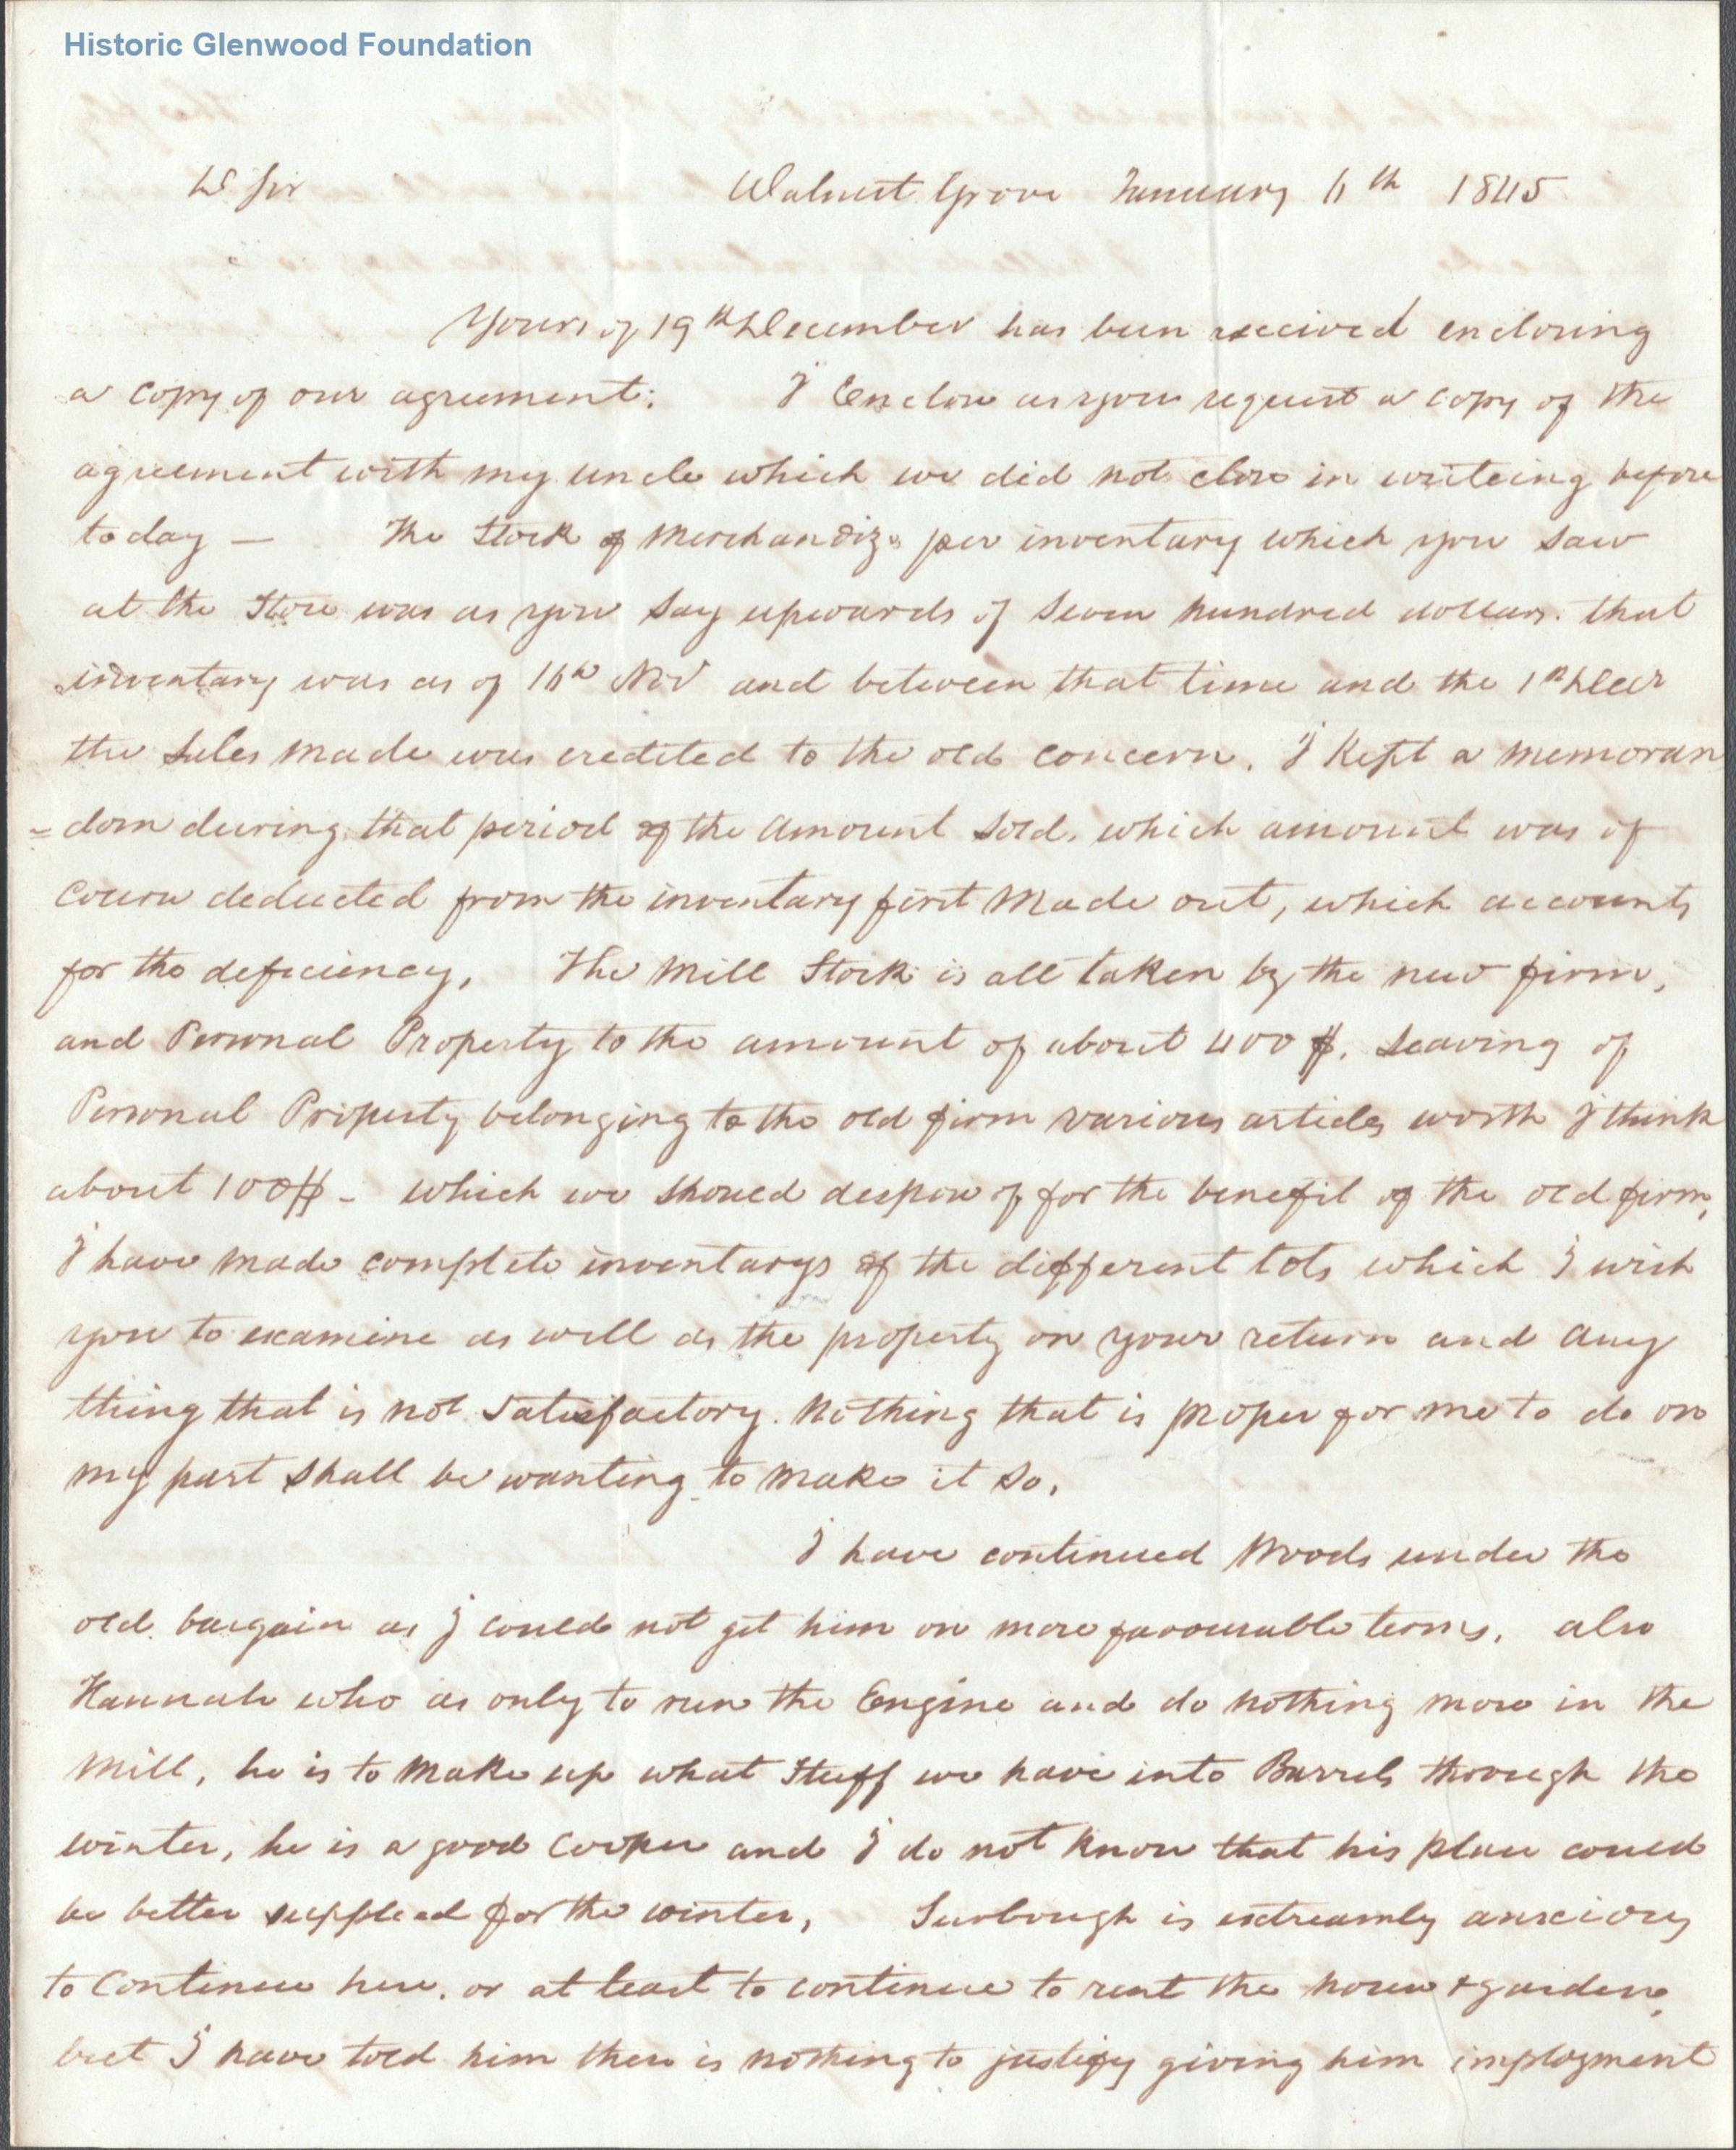 Historic Glenwood Foundation
D Sir Walnut Grove January 11th 1845
Yours of 19th December has been received enclosing
a copy of our agreement. I Enclose as you request a copy of the
agreement with my uncle which we did not close in writeing before
today — The Stock of Merchandize per inventary which you saw
at the Store was as you say upwards of Seven hundred dollars. that
inventary was as of 16th Nov and between that time and the 1st Decr
the Sales made was credited to the old concern. I Kept a memoran
=dom during that period of the amount Sold. which amount was of
course deducted from the inventary first Made out, which accounts
for the deficiency, The Mill Stock is all taken by the new firm,
and Personal Property to the amount of about 400$. Leaving of
Personal Property belonging to the old firm various articles worth I think
about 100$ - which we should despose of for the benefit of the old firm,
I have made complete inventarys of the different lots which I wish
you to examine as well as the property on your return and any
thing that is not Satisfactory. Nothing that is proper for me to do on
my part shall be wanting to make it So,
I have continued Woods under the
old bargain as I could not get him on more favourable terms, also
Hannah who is only to run the Engine and do nothing more in the
Mill, he is to Make up what Stuff we have into Barrels through the
winter, he is a good Cooper and I do not know that his place could
be better supplied for the winter, is extreamly anxious
to Continue here, or at least to continue to rent the house + garden,
but I have told him there is nothing to justify giving him imployment